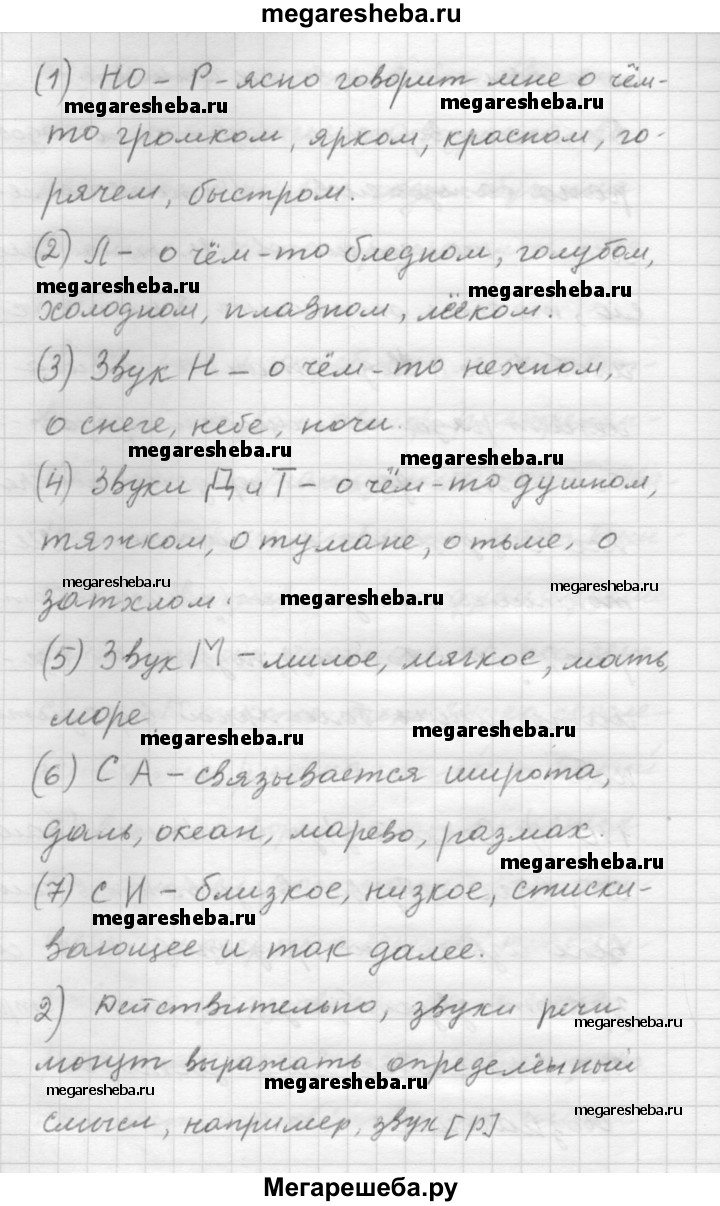 megaresheba.ru
(1) Но – Р – ясно говорит мне о чём-
megaresheba.ru megaresheba.ru
то громком, ярком, красном, го-
рячем, быстром.
(2) Л – о чём-то бледном, голубом,
megaresheba.ru megaresheba.ru
холодном, плавном, лёгком.
(3) Звук Н – о чём-то нежном,
о снеге, небе, ночи.
megaresheba.ru megaresheba.ru
(4) Звуки Д и Т – о чём-то душном,
тяжком, о тумане, о тьме, о
megaresheba.ru megaresheba.ru megaresheba.ru
затхлом.
(5) Звук М – милое, мягкое, мать,
море
megaresheba.ru megaresheba.ru
(6) С А – связывается широта,
даль, океан, марево, размах.
megaresheba.ru
(7) с И – близкое, низкое, стиски-
megaresheba.ru
вающее и так далее.
2) Действительно, звуки речи
megaresheba.ru
могут выражать определённый
megaresheba.ru megaresheba.ru megaresheba.ru
смысл, например, звук [р]
Мегарешеба.ру